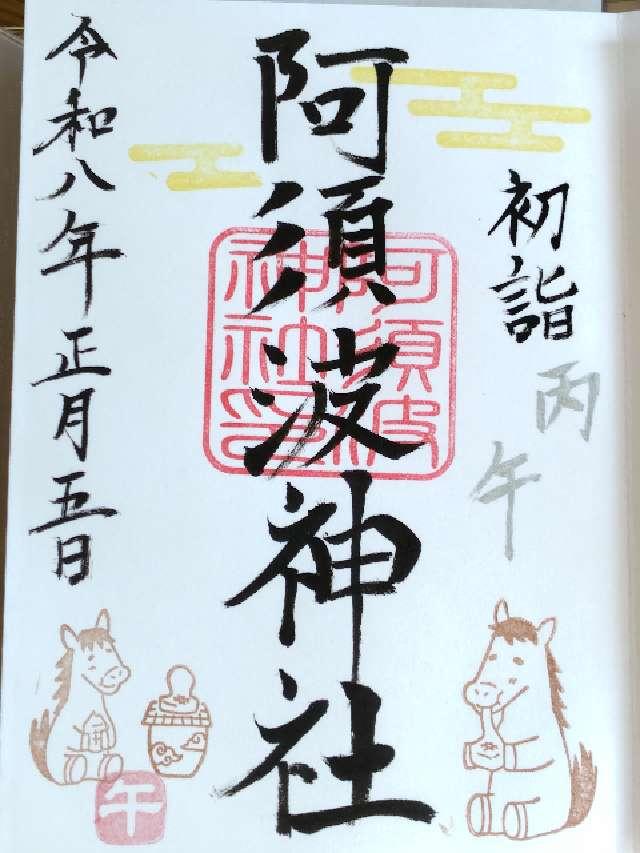 初詣
丙
午
阿須波神社
阿須波
神社印
令和八年正月五日
午